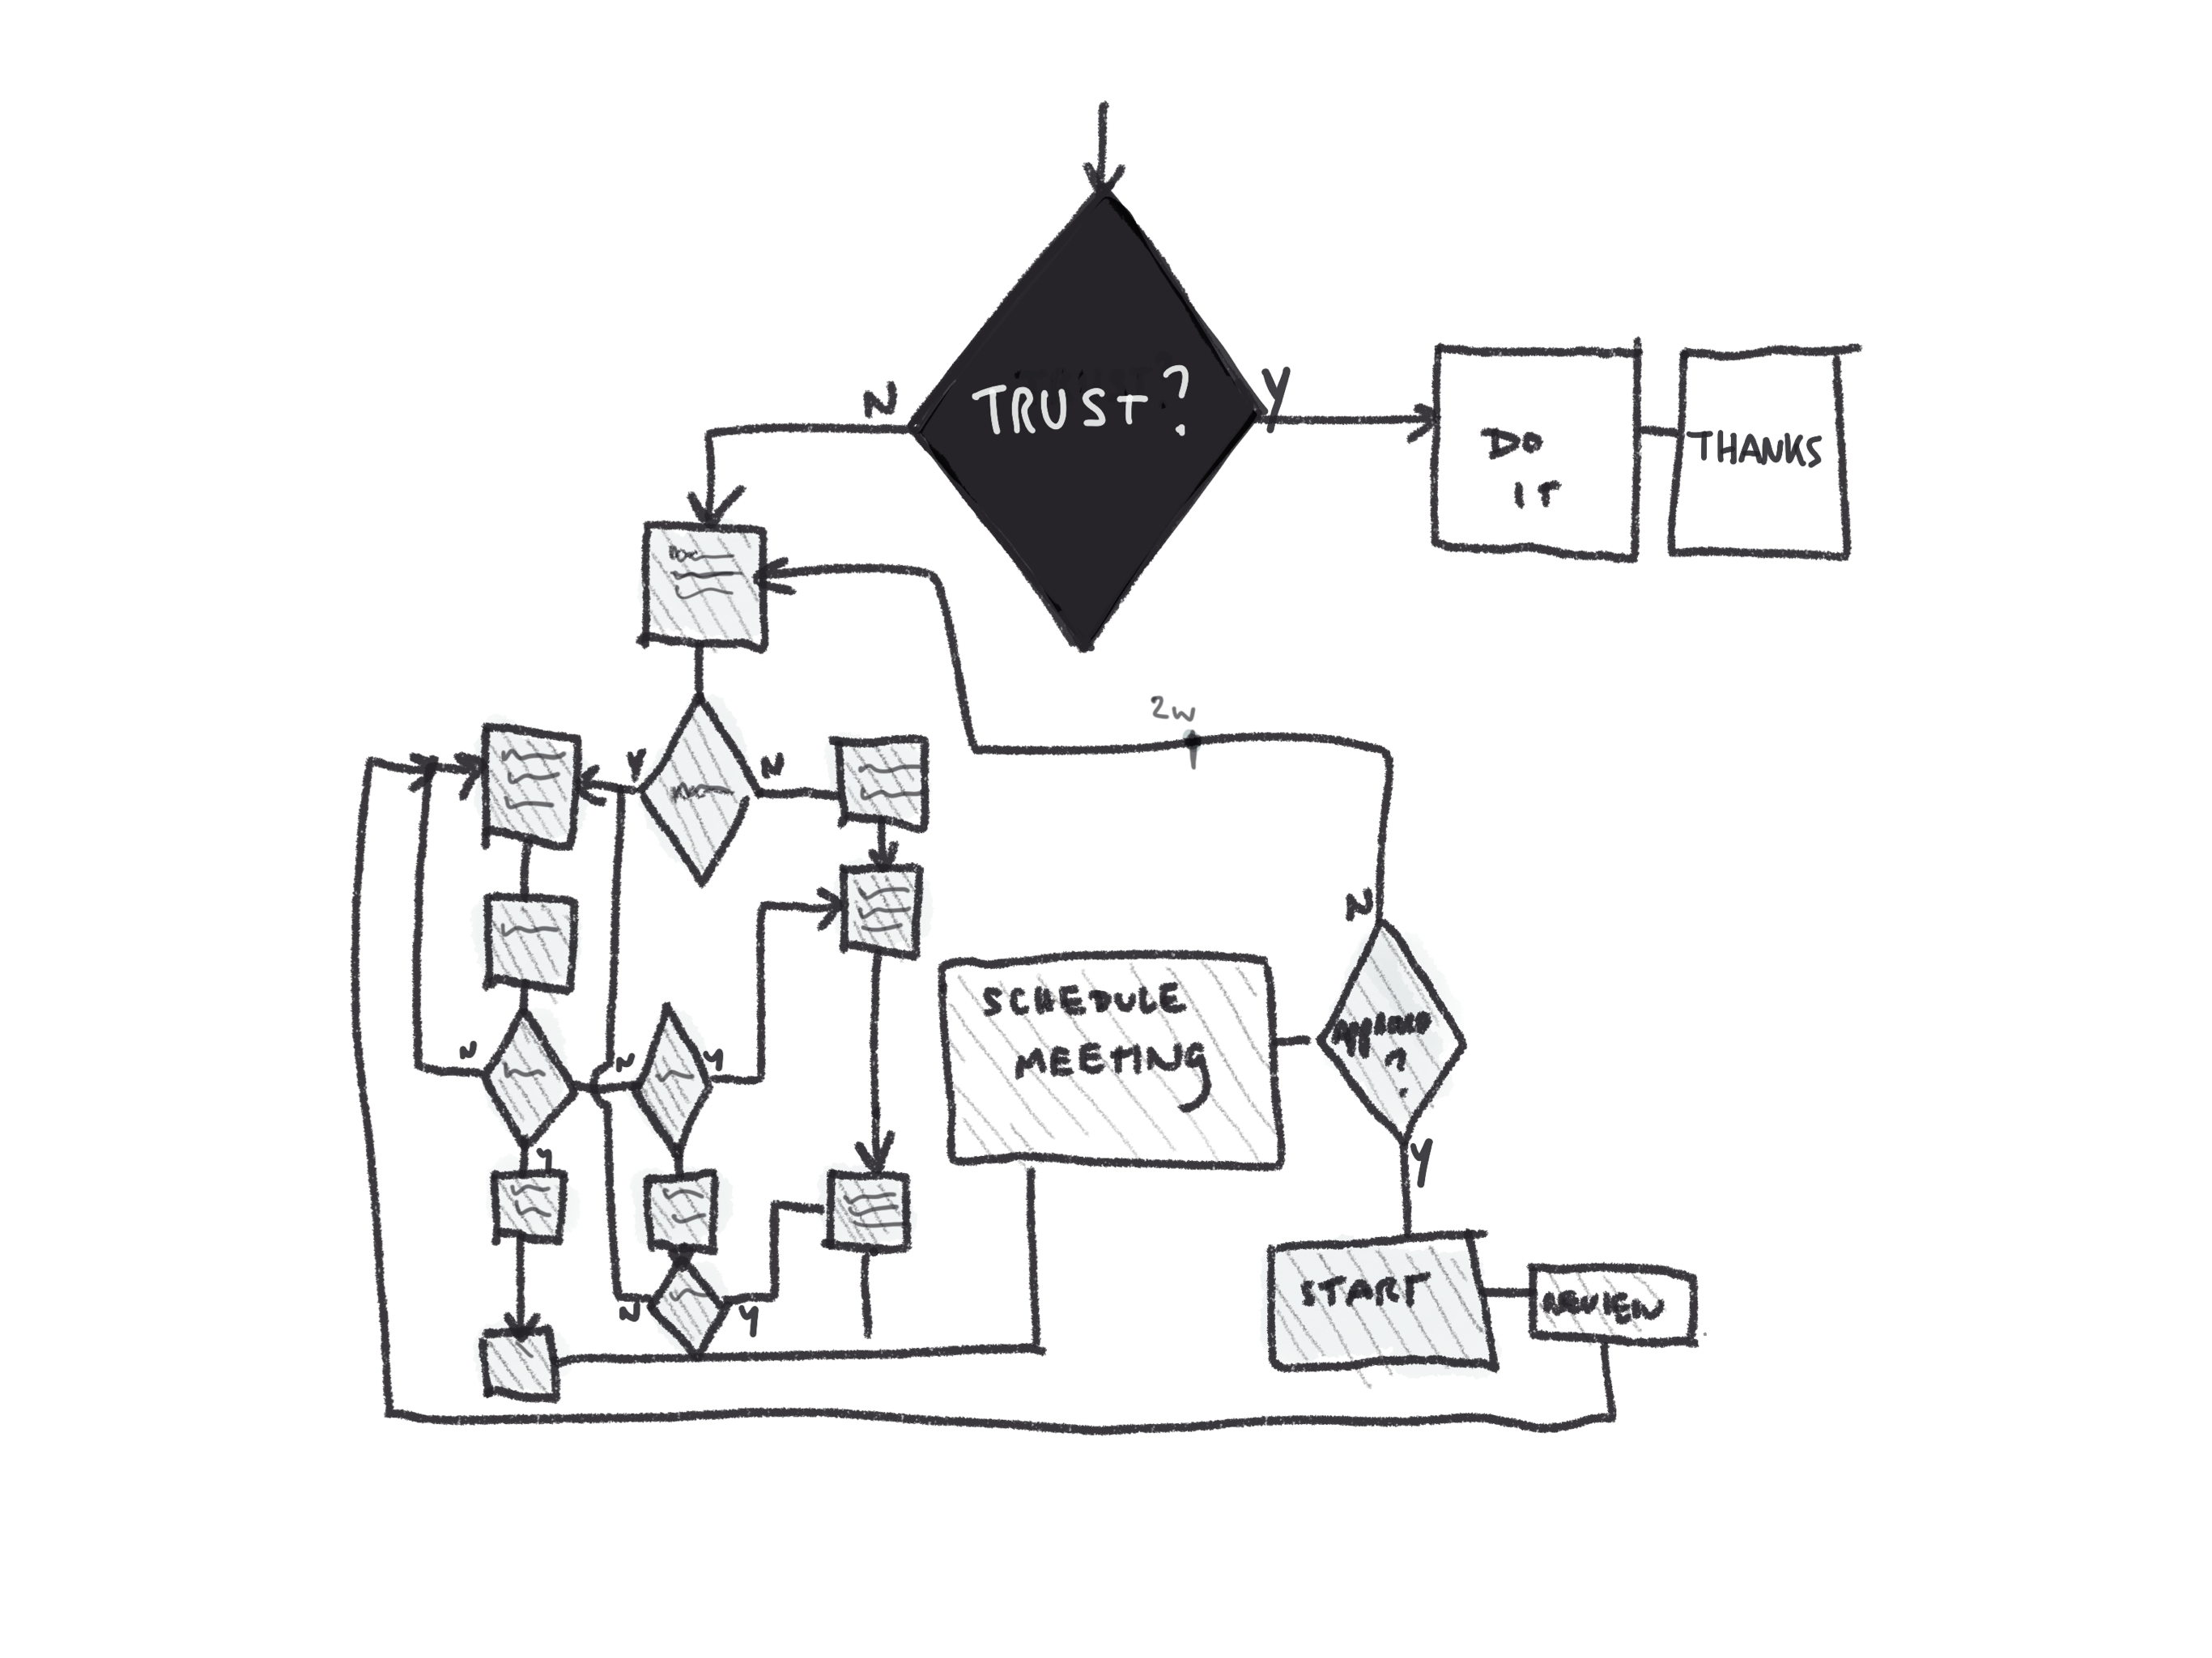 TRUST?
N
Y
DO
IT
THANKS
2W
Y
N
N
SCHEDULE
MEETING
APPROVED
?
N
N
Y
Y
Y
START
REVIEW
N
Y